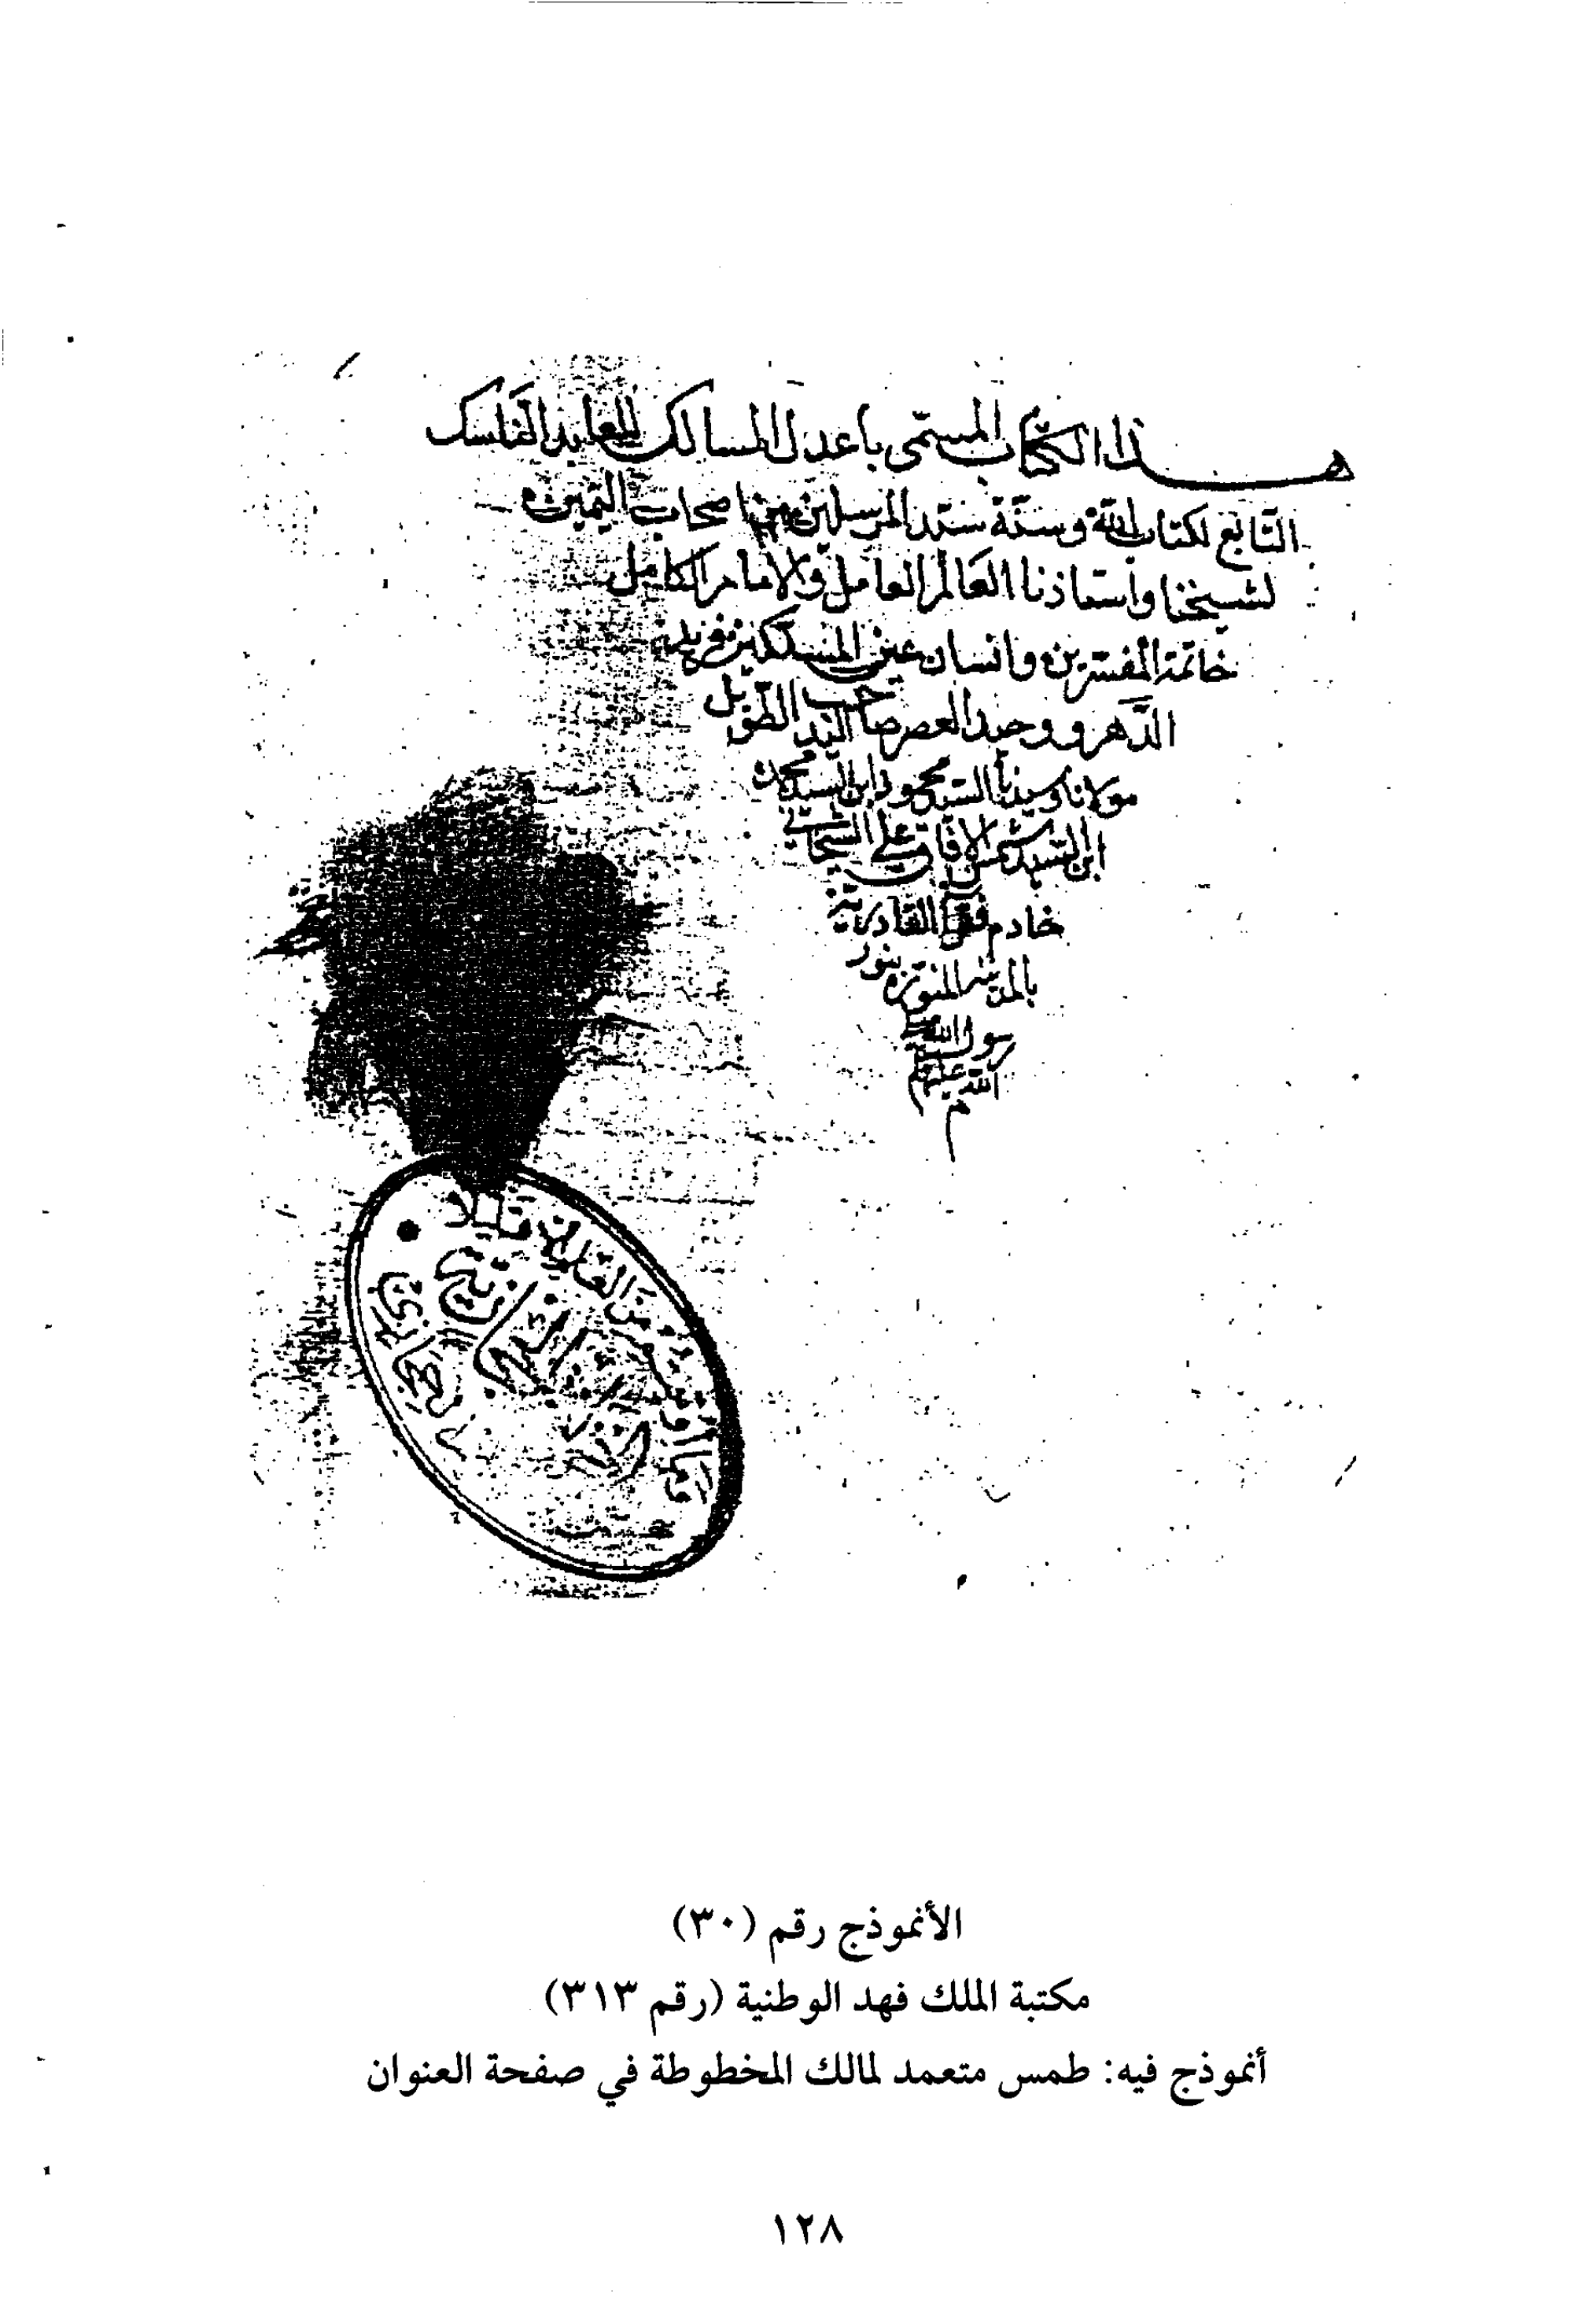 هذا الكتاب المسمى باعدل المسالك للعابد الناسك
التابع لكتاب الله وسنة سيد المرسلين من اصحاب اليمين
لشيخنا وأستاذنا العالم العامل والامام الكامل
خاتمة المفسرين وانسان عين المتمسكين فريد
الدهر ووحيد العصر صاحب اليد الطولى
مولانا وسيدنا السيد محمود ابن السيد محمد
ابن السيد شمس الافاق علي
خادم فقراء القادرية
بالمدينة المنورة بنور
رسول الله صلى
الله عليه
م
الأنموذج رقم (٣٠)
مكتبة الملك فهد الوطنية (رقم ٣١٣)
أنموذج فيه: طمس متعمد لمالك المخطوطة في صفحة العنوان
١٢٨